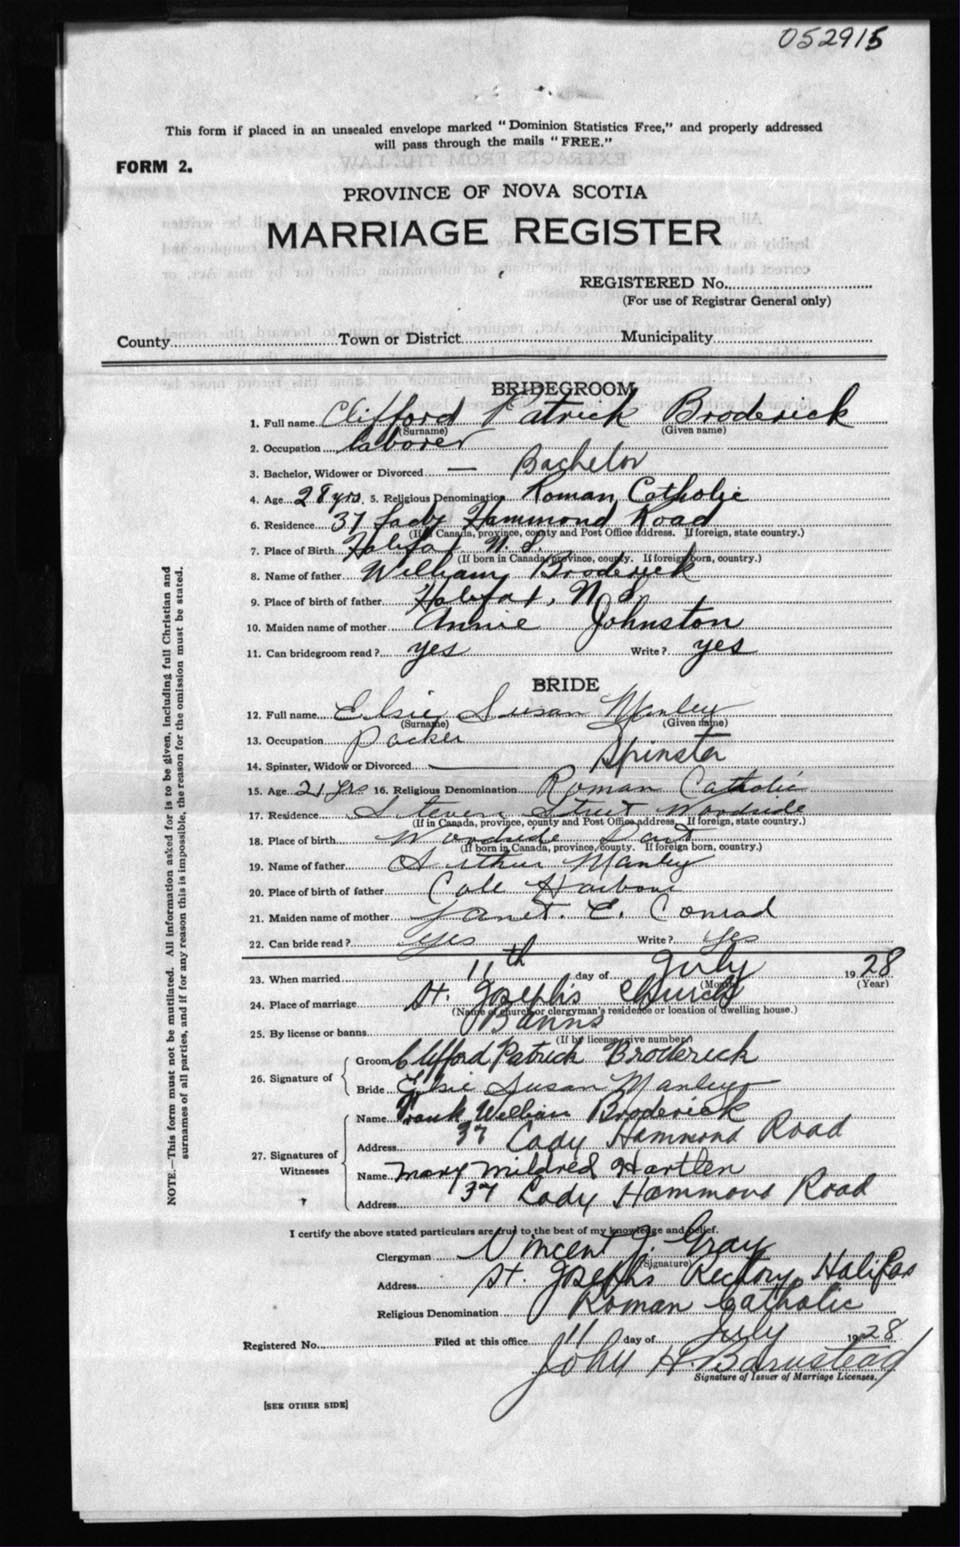 052915
This form if placed in an unsealed envelope marked "Dominion Statistics Free," and properly addressed
will pass through the mails "FREE."
FORM 2.
PROVINCE OF NOVA SCOTIA
MARRIAGE REGISTER
REGISTERED No.
(For use of Registrar General only)
County Town or District Municipality
BRIDEGROOM
1. Full name Clifford Patrick Broderick
(Surname) (Given name)
2. Occupation laborer
3. Bachelor, Widower or Divorced — Bachelor
4. Age 28 yrs. 5. Religious Denomination Roman Catholic
6. Residence 37 Lady Hammond Road
(If in Canada, province, county and Post Office address. If foreign, state country.)
7. Place of Birth Halifax N.S.
(If born in Canada, province, county. If foreign born, country.)
8. Name of father William Broderick
9. Place of birth of father Halifax, N.S.
10. Maiden name of mother Annie Johnston
11. Can bridegroom read? yes Write? yes
BRIDE
12. Full name Elsie Susan Manley
(Surname) (Given name)
13. Occupation Packer
14. Spinster, Widow or Divorced — Spinster
15. Age 21 yrs 16. Religious Denomination Roman Catholic
17. Residence Steven Street Woodside
(If in Canada, province, county and Post Office address. If foreign, state country.)
18. Place of birth Woodside Dart
(If born in Canada, province, county. If foreign born, country.)
19. Name of father Arthur Manley
20. Place of birth of father Cole Harbour
21. Maiden name of mother Janet. E. Conrad
22. Can bride read? yes Write? yes
23. When married 11th day of July 1928
(Month) (Year)
24. Place of marriage St. Joseph's Church
(Name of church or clergyman's residence or location of dwelling house.)
25. By license or banns Banns
(If by license give number)
26. Signature of Groom Clifford Patrick Broderick
Bride Elsie Susan Manley
27. Signatures of Witnesses Name Frank William Broderick
Address 37 Lady Hammond Road
Name Mary Mildred Hartlen
Address 37 Lady Hammond Road
I certify the above stated particulars are true to the best of my knowledge and belief.
Clergyman Vincent J. Gray
(Signature)
Address St. Joseph's Rectory, Halifax
Religious Denomination Roman Catholic
Registered No. Filed at this office 11 day of July 1928
John H. Barnstead
Signature of Issuer of Marriage Licenses.
[SEE OTHER SIDE]
NOTE.—This form must not be mutilated. All information asked for is to be given, including full Christian and
surnames of all parties, and if for any reason this is impossible, the reason for the omission must be stated.